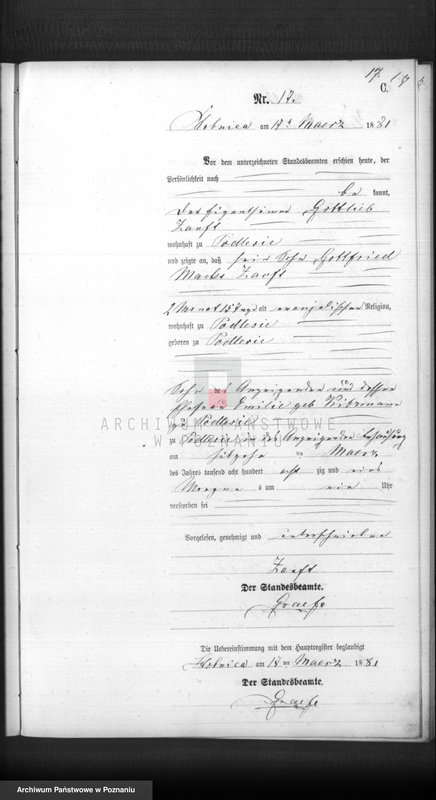 17. 17
C.
Nr. 17.
am 17t Maerz 1881
Vor dem unterzeichneten Standesbeamten erschien heute, der
Persönlichkeit nach
be kannt,
der Eigenthümer Gottlieb
Zarft
wohnhaft zu Podlesie
und zeigte an, daß sein Sohn Gottfried
Zarft
2 Monat 15 Tage alt evangelischer Religion,
wohnhaft zu Podlesie
geboren zu Podlesie
Sohn des Anzeigenden und dessen
Ehefrau Emilie geb
zu Podlesie
zu Podlesie in des Anzeigenden Behausung
am ten Maerz
des Jahres tausend acht hundert acht zig und eins
Morgens um Uhr
verstorben sei
Vorgelesen, genehmigt und unterschrieben
Zarft
Der Standesbeamte.
Graefe
Die Uebereinstimmung mit dem Hauptregister beglaubigt
am 17 ten Maerz 1881
Der Standesbeamte.
Graefe
ARCHIWUM PAŃSTWOWE
W POZNANIU
Archiwum Państwowe w Poznaniu